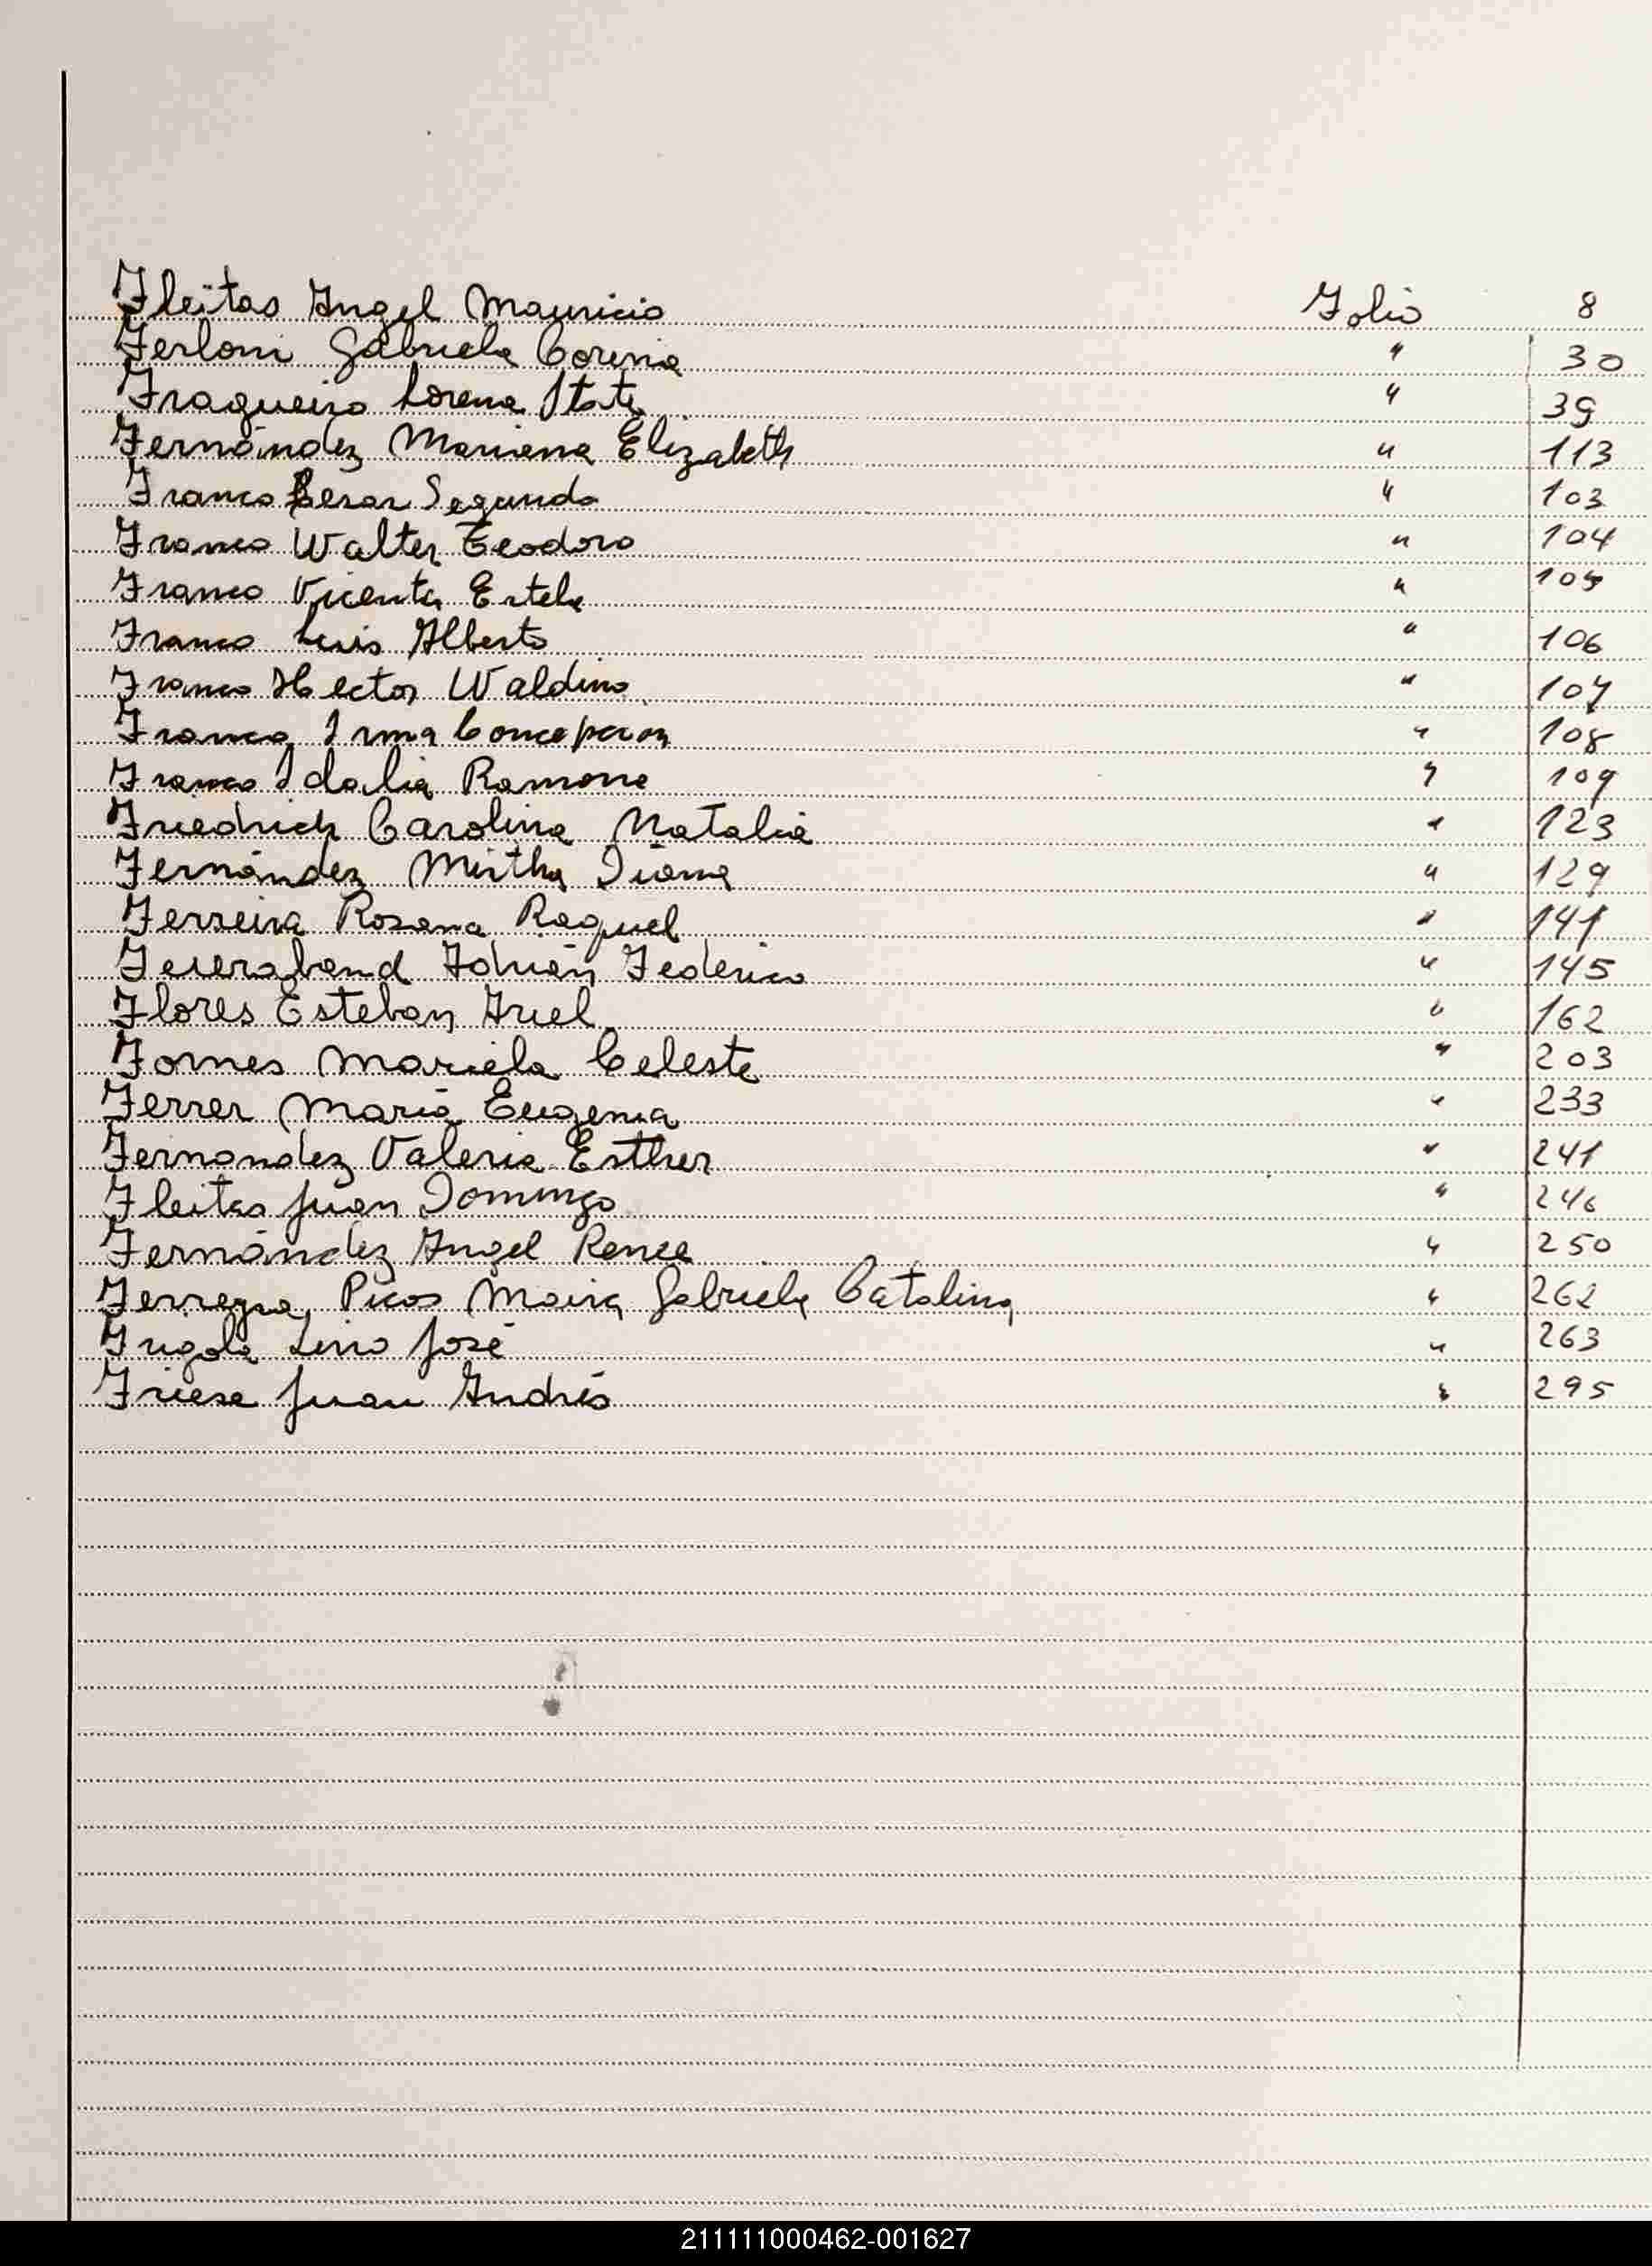 Fleitas Angel Mauricio Folio 8
Ferloni Gabriela Corina " 30
Fragueiro Lorena Itatí " 39
Fernández Mariana Elizabeth " 113
Franco Cesar Segundo " 103
Franco Walter Teodoro " 104
Franco Vicenta Estela " 105
Franco Luis Alberto " 106
Franco Hector Waldino " 107
Franco Irma Concepcion " 108
Franco Idalia Ramona " 109
Friedrich Carolina Natalia " 123
Fernández Mirtha Diana " 129
Ferreira Rosana Raquel " 141
Feuerabend Adrián Federico " 145
Flores Esteban Ariel " 162
Fornes Mariela Celeste " 203
Ferrer María Eugenia " 233
Fernandez Valeria Esther " 241
Fleitas Juan Domingo " 246
Fernández Angel Renee " 250
Picos Maira Gabriela Catalina " 262
Frigola Lino José " 263
Friese Juan Andrés " 295
211111000462-001627